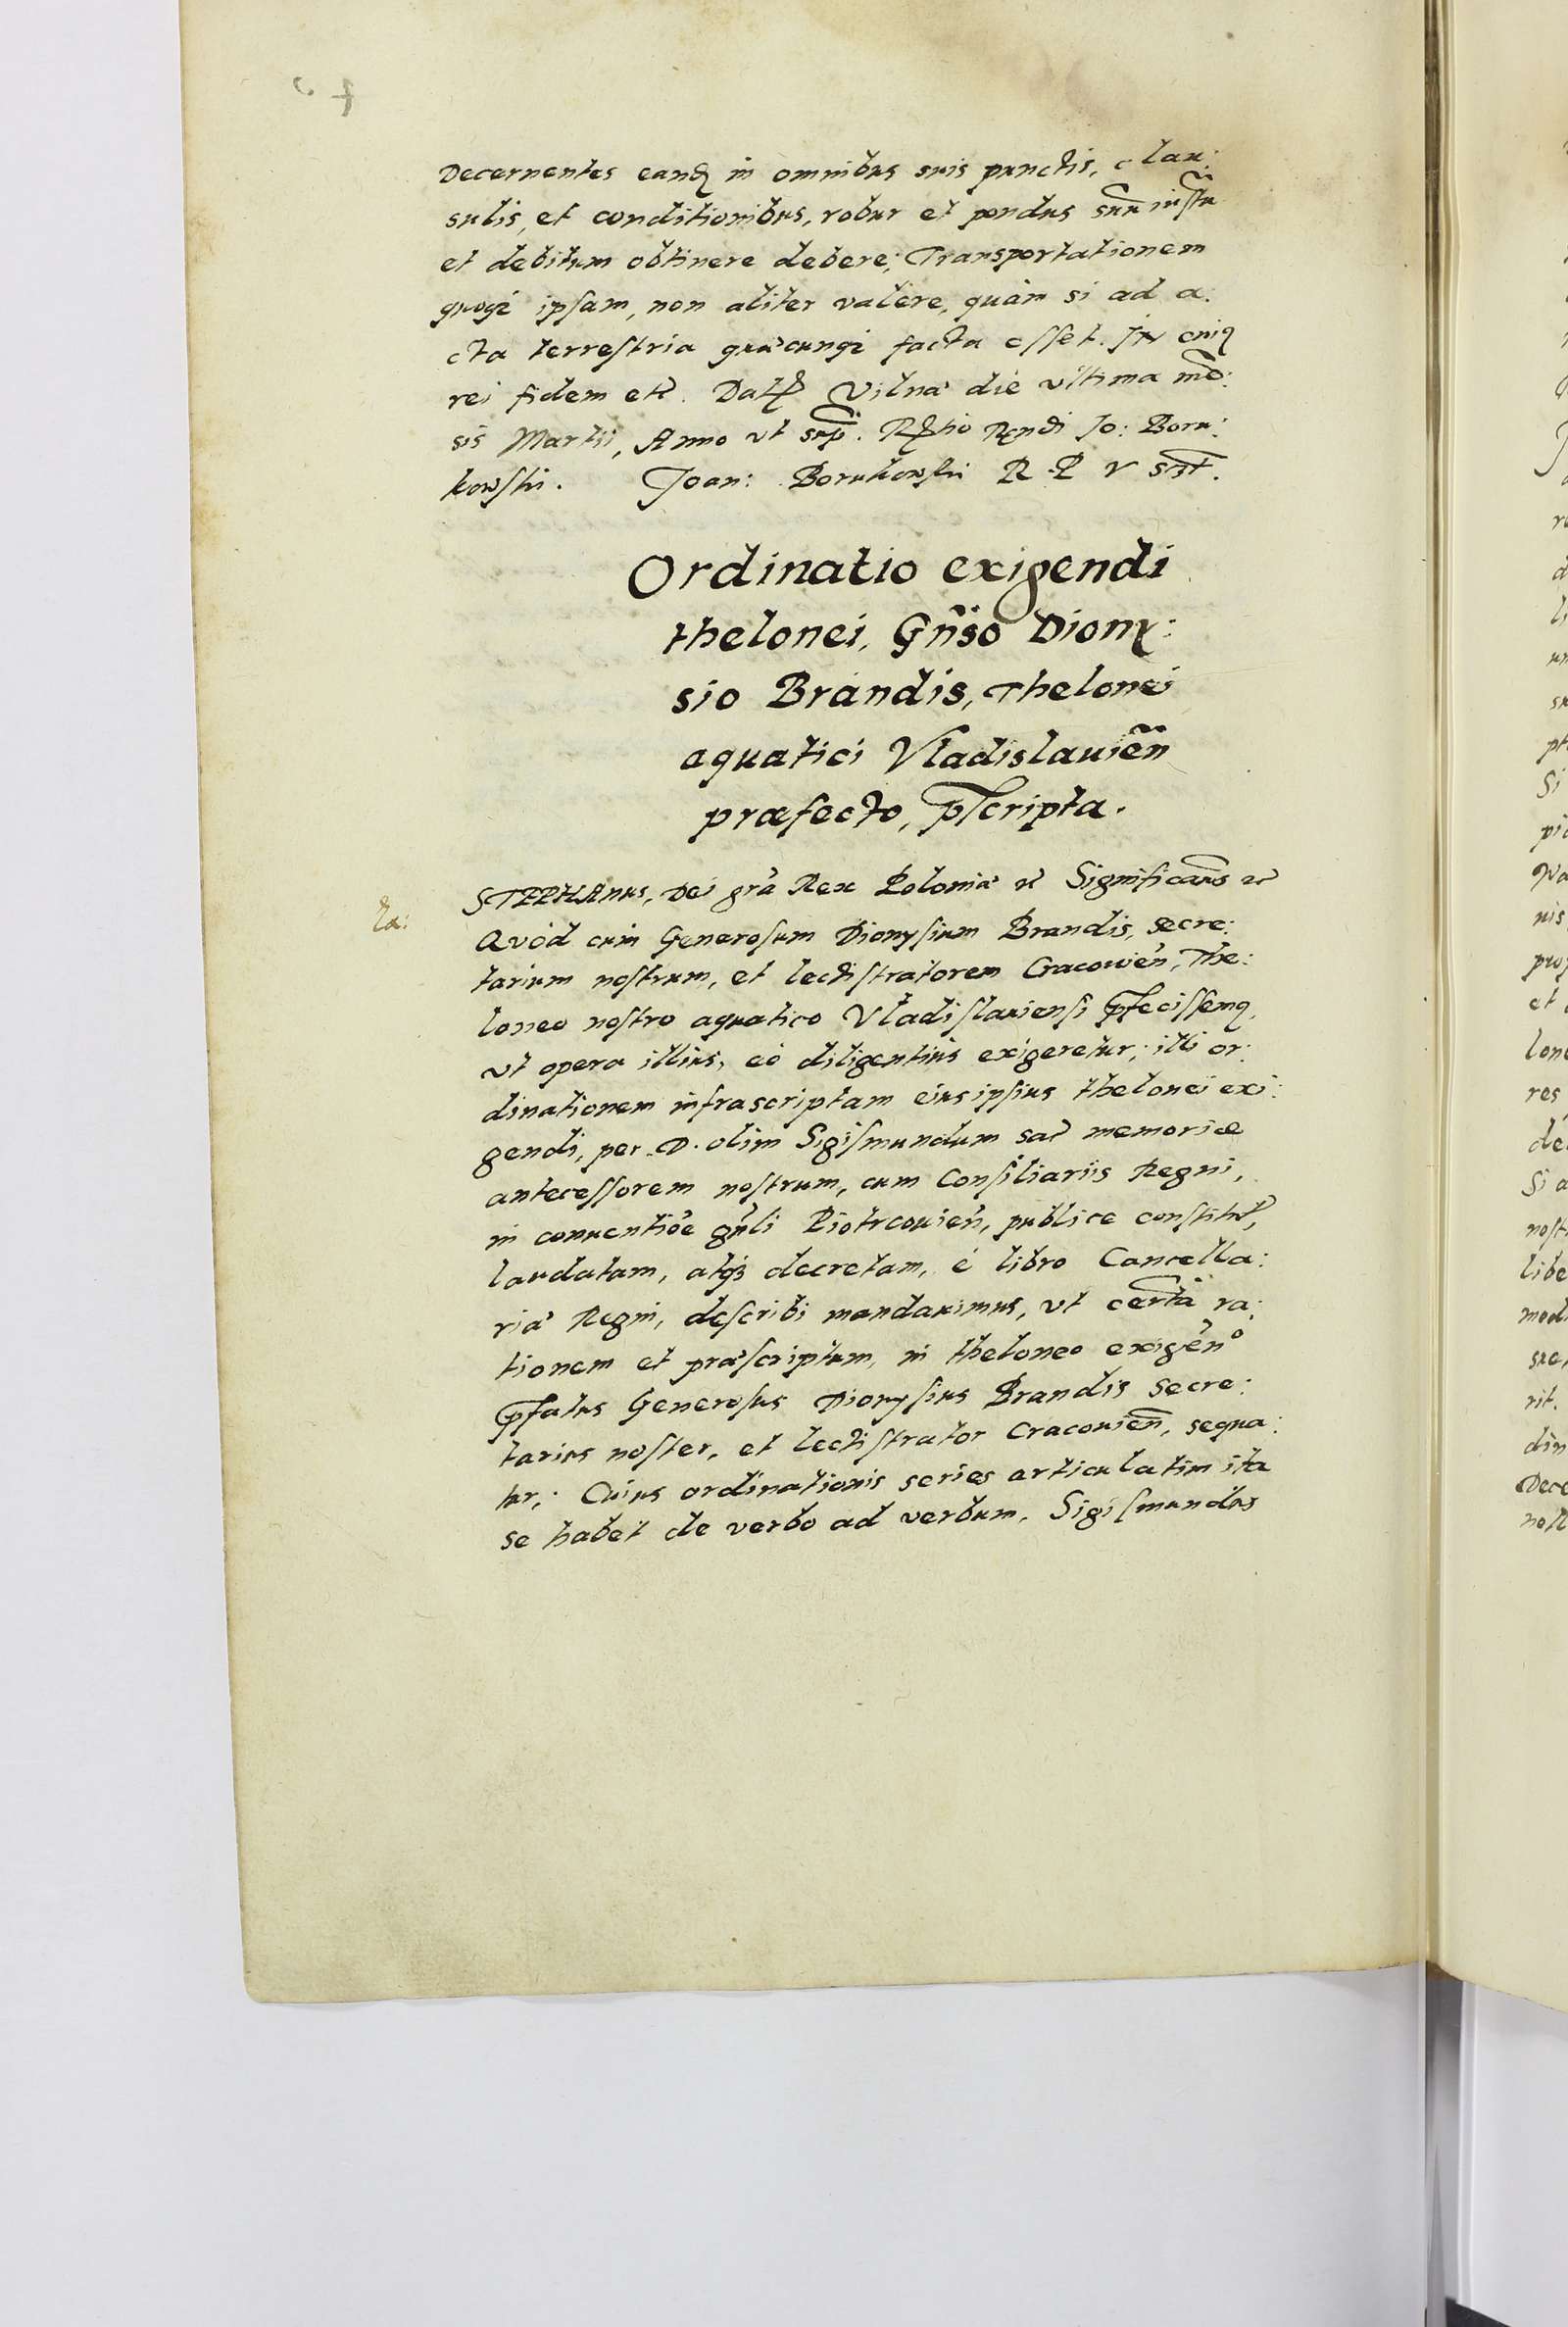 Decernentes eandꝫ in omnibus suis punctis, clau:
sulis, et conditionibus, robur et pondus suũ iustũ
et debitum obtinere debere; Transportationem
quoqꝫ ipsam, non aliter valere, quàm si ad a:
cta terrestria quæcunqꝫ facta esset. In cuiꝰ
rei fidem etc̃. Datꝭ Vilnæ die vltima mẽ:
sis Martii, Anno vt sup̃. Rꝭtio Rꝫndi Jo: Boru:
kowski. Joan: Borukowski R. P. V scꝭt.
Ordinatio exigendi
thelonei, Gñso Diony:
sio Brandis, Thelonei
aquatici Vladislauieñ
præfecto, p̃scripta.
STEPHANus, Dei grã Rex Poloniæ etc̃ Significam̃s etc̃
Quòd cum Generosum Dionysium Brandis, secre:
tarium nostrum, et lectistratorem Cracouieñ, The:
loneo nostro aquatico Vladislauiensi p̃fecissemꝰ,
vt opera illius, eò diligentius exigeretur; illi or:
dinationem infrascriptam eius ipsius thelonei exi:
gendi, per D. olim Sigismundum sac̃ memoriæ
antecessorem nostrum, cum Consiliariis Regni,
in conuentiõe gñli Piotrcouieñ, publice constitut̃,
laudatam, atqꝫ decretam, è libro Cancella:
riæ Regni, describi mandauimus, vt certã ra:
tionem et præscriptum, in theloneo exigeñº
p̃fatus Generosus Dionysius Brandis secre:
tarius noster, et lectistrator Cracouieñ, sequa:
tur; Cuius ordinationis series articulatim ita
se habet de verbo ad verbum. Sigismundus